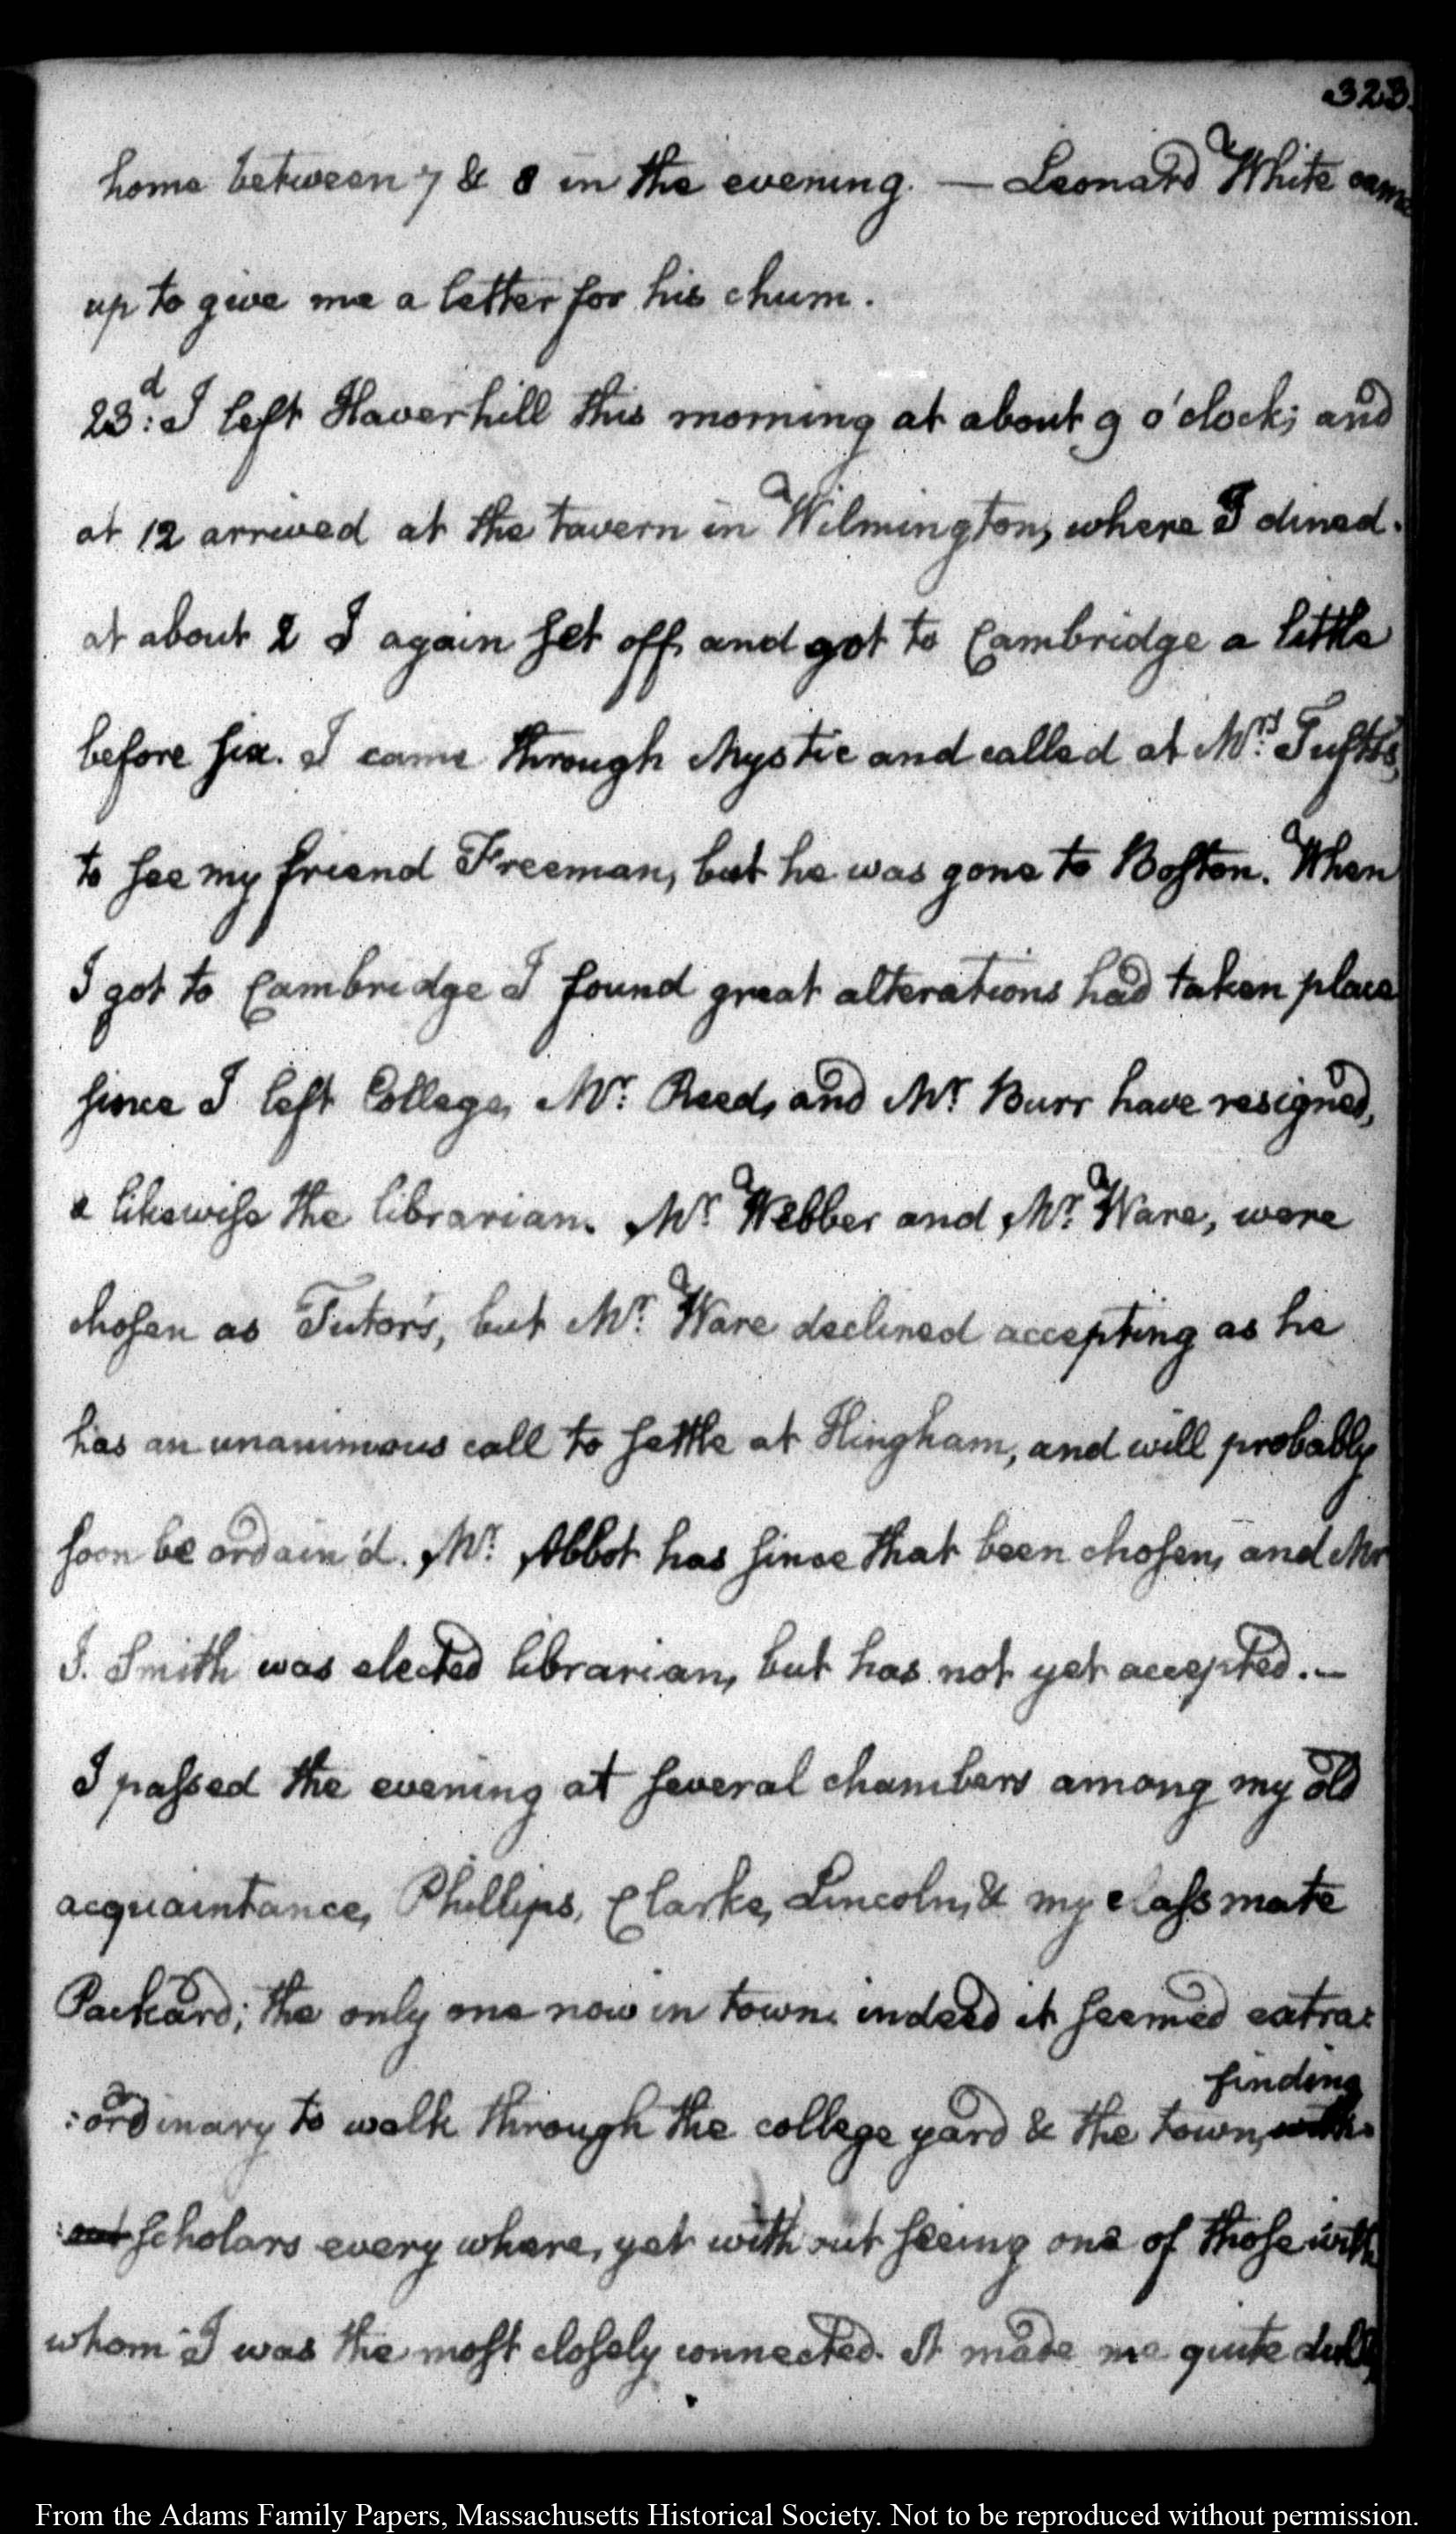 323.
home between 7 & 8 in the evening. — Leonard White came
up to give me a letter for his chum.
23.d I left Haverhill this morning at about 9 o'clock; and
at 12 arrived at the tavern in Wilmington, where I dined.
at about 2 I again set off, and got to Cambridge a little
before six. I came through Mystic and called at Mrs. Tufts's,
to see my friend Freeman, but he was gone to Boston. When
I got to Cambridge I found great alterations had taken place
since I left College, Mr. Reed, and Mr. Burr have resigned,
& likewise the librarian. Mr. Webber and Mr. Ware, were
chosen as Tutor's, but Mr. Ware declined accepting as he
has an unanimous call to settle at Hingham, and will probably
soon be ordain'd. Mr. Abbot has since that been chosen, and Mr
J. Smith was elected librarian, but has not yet accepted. —
I passed the evening at several chambers among my old
acquaintance, Phillips, Clarke, Lincoln, & my classmate
Packard; the only one now in town. indeed it seemed extra:
finding
:ordinary to walk through the college yard & the town, with:
:out scholars every where, yet without seeing one of those with
whom I was the most closely connected. It made me quite dull,
From the Adams Family Papers, Massachusetts Historical Society. Not to be reproduced without permission.